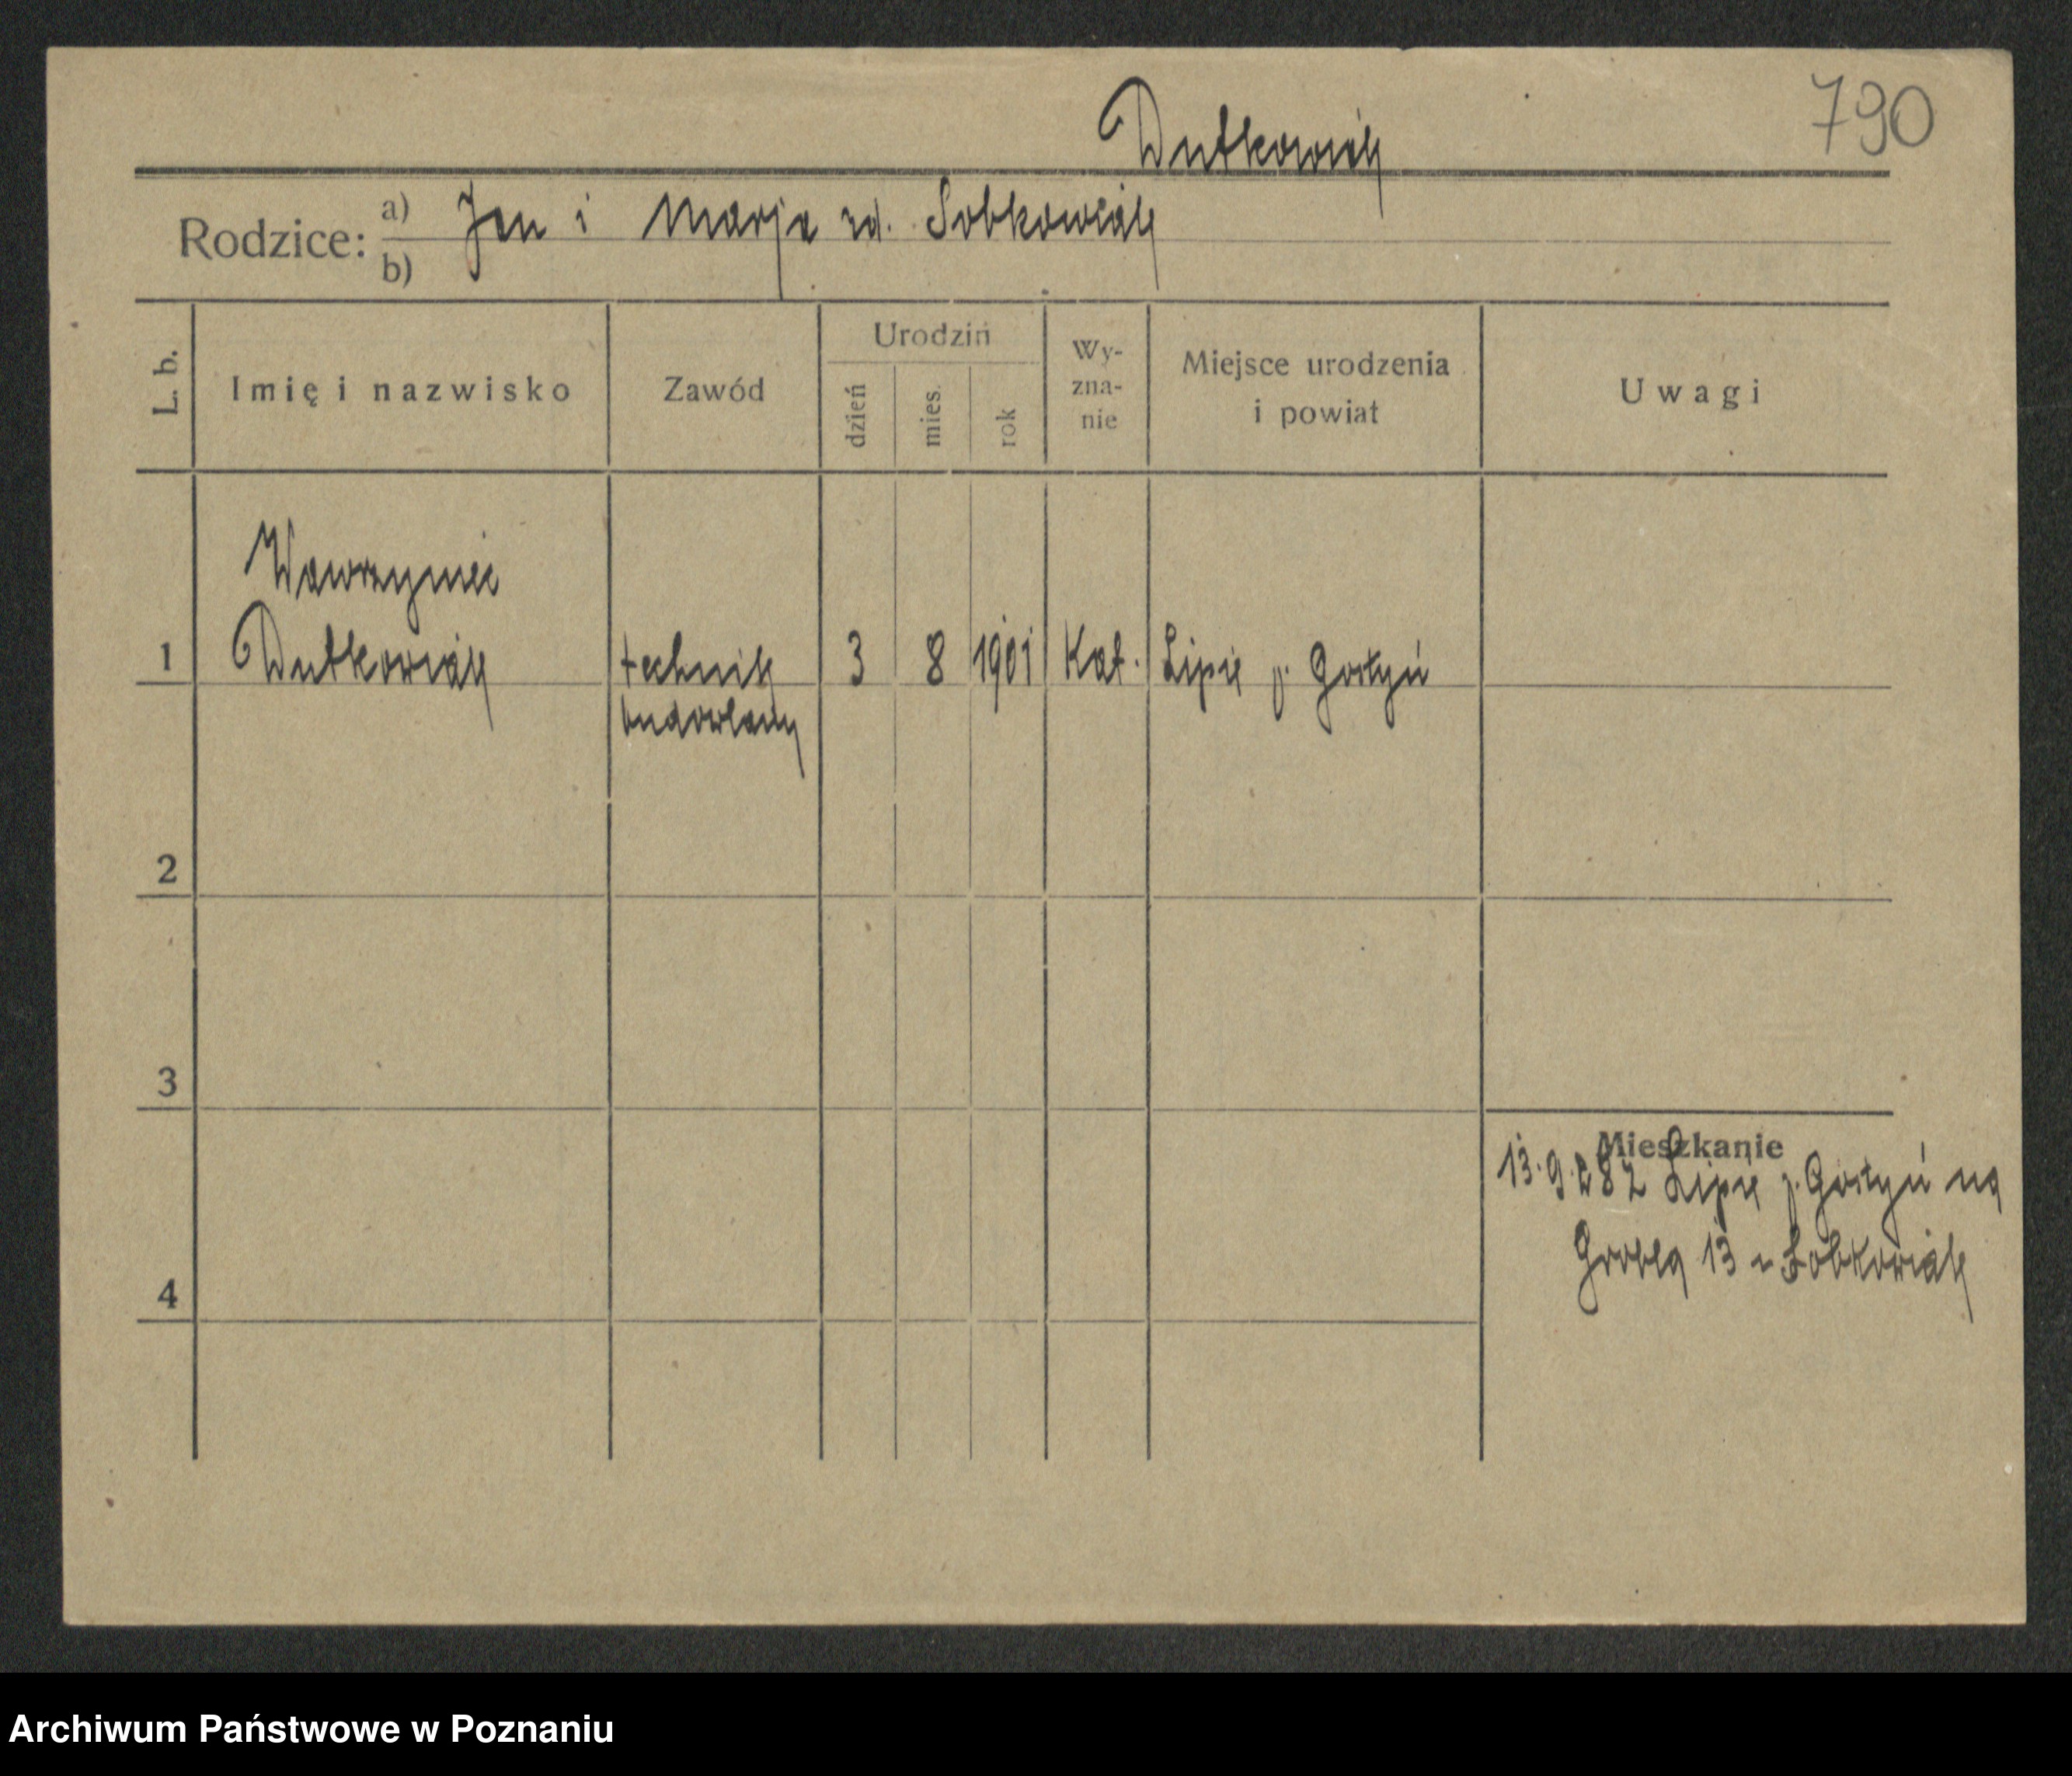 790
Dutkowiak
Rodzice: a) Jan i Marja zd. Sobkowiak
b)
L. b.
Imię i nazwisko
Zawód
Urodzin
dzień
mies.
rok
Wy-
zna-
nie
Miejsce urodzenia
i powiat
Uwagi
Wawrzyniec
1 Dutkowiak technik 3 8 1901 Kat. Lipie p. Gostyń
budowlany
2
3
Mieszkanie
13.9. Lipie p. Gostyń na
Grobla 13 u Sobkowiak
4
Archiwum Państwowe w Poznaniu